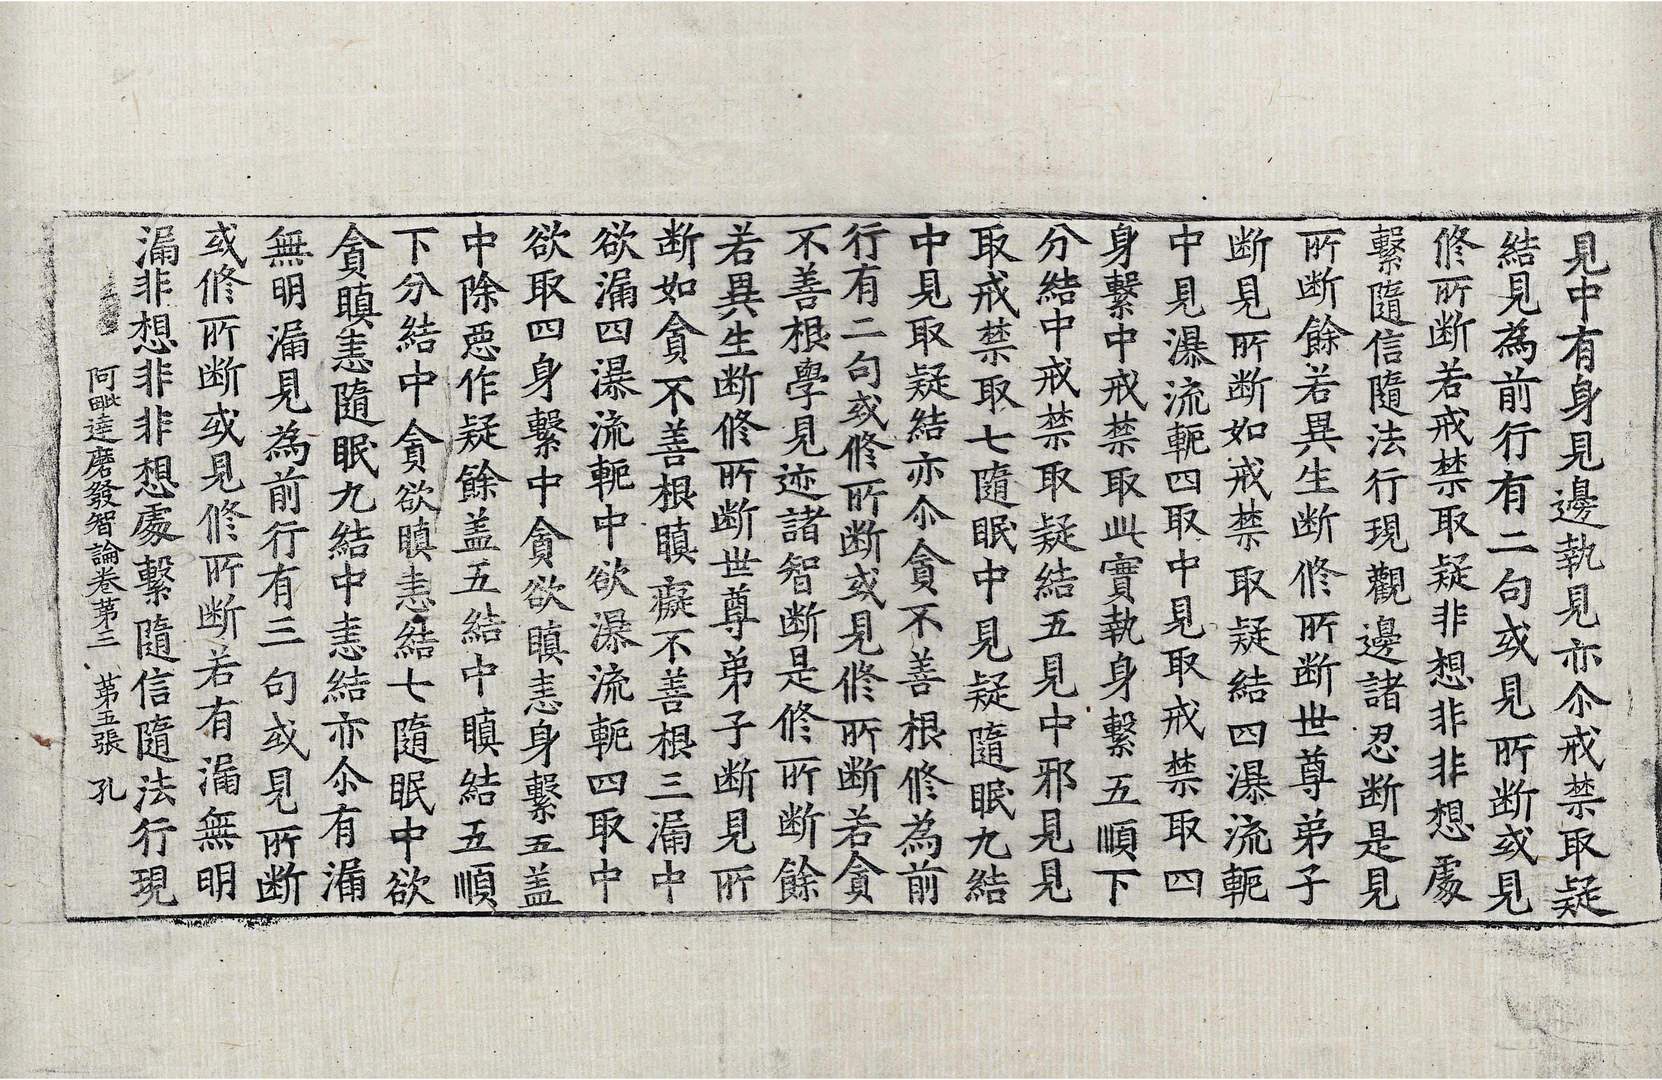 見中有身見邊執見亦尒戒禁取疑
結見為前行有二句或見所断或見
修所断若戒禁取疑非想非非想處
繫隨信隨法行現觀邊諸忍断是見
所断餘若異生断修所断世尊弟子
断見所断如戒禁取疑結四瀑流軛
中見瀑流軛四取中見取戒禁取四
身繫中戒禁取此實執身繫五順下
分結中戒禁取疑結五見中邪見見
取戒禁取七隨眠中見疑隨眠九結
中見取疑結亦尒貪不善根修為前
行有二句或修所断或見修所断若貪
不善根學見迹諸智断是修所断餘
若異生断修所断世尊弟子断見所
断如貪不善根瞋癡不善根三漏中
欲漏四瀑流軛中欲瀑流軛四取中
欲取四身繫中貪欲瞋恚身繫五盖
中除惡作疑餘盖五結中瞋結五順
下分結中貪欲瞋恚結七隨眠中欲
貪瞋恚隨眠九結中恚結亦尒有漏
無明漏見為前行有三句或見所断
或修所断或見修所断若有漏無明
漏非想非非想處繫隨信隨法行現
阿毗達磨發智論卷第三 第五張 孔